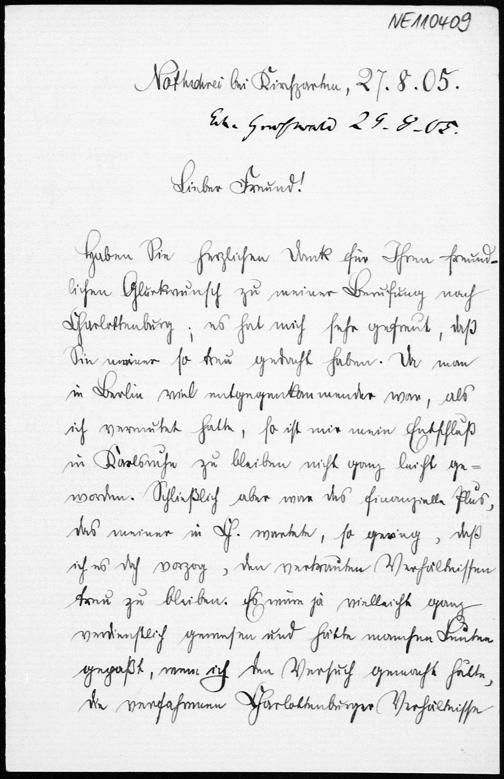 NE110409
bei Kirchzarten, 27.8.05.
Greifswald 29-8-05.
Lieber Freund!
Haben Sie herzlichen Dank für Ihren freund-
lichen Glückwunsch zu meiner Berufung nach
Charlottenburg; es hat mich sehr gefreut, daß
Sie meiner so treu gedacht haben. Da man
in Berlin viel entgegenkommender war, als
ich vermutet hatte, so ist mir mein Entschluß
in Karlsruhe zu bleiben nicht ganz leicht ge=
worden. Schließlich aber war das finanzielle Plus,
das meiner in Ch. wartete, so gering, daß
ich es doch vorzog, den vertrauten Verhältnissen
treu zu bleiben. Es wäre ja vielleicht ganz
verdienstlich gewesen und hätte manchen Leuten
gepaßt, wenn ich den Versuch gemacht hätte,
die verfahrenen Charlottenburger Verhältnisse